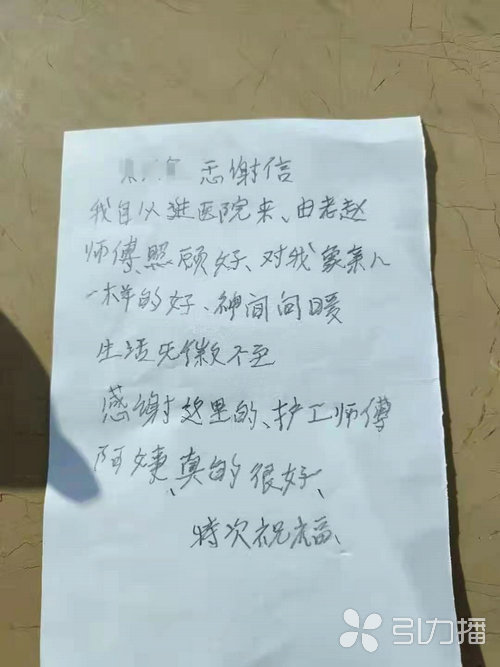 感谢信
我自从进医院来、由老赵
师傅照顾好、对我象亲人
一样的好、神间问暖
生活无微不至
感谢这里的、护工师傅
阿姨、真的很好、
特次祝福、
引力播